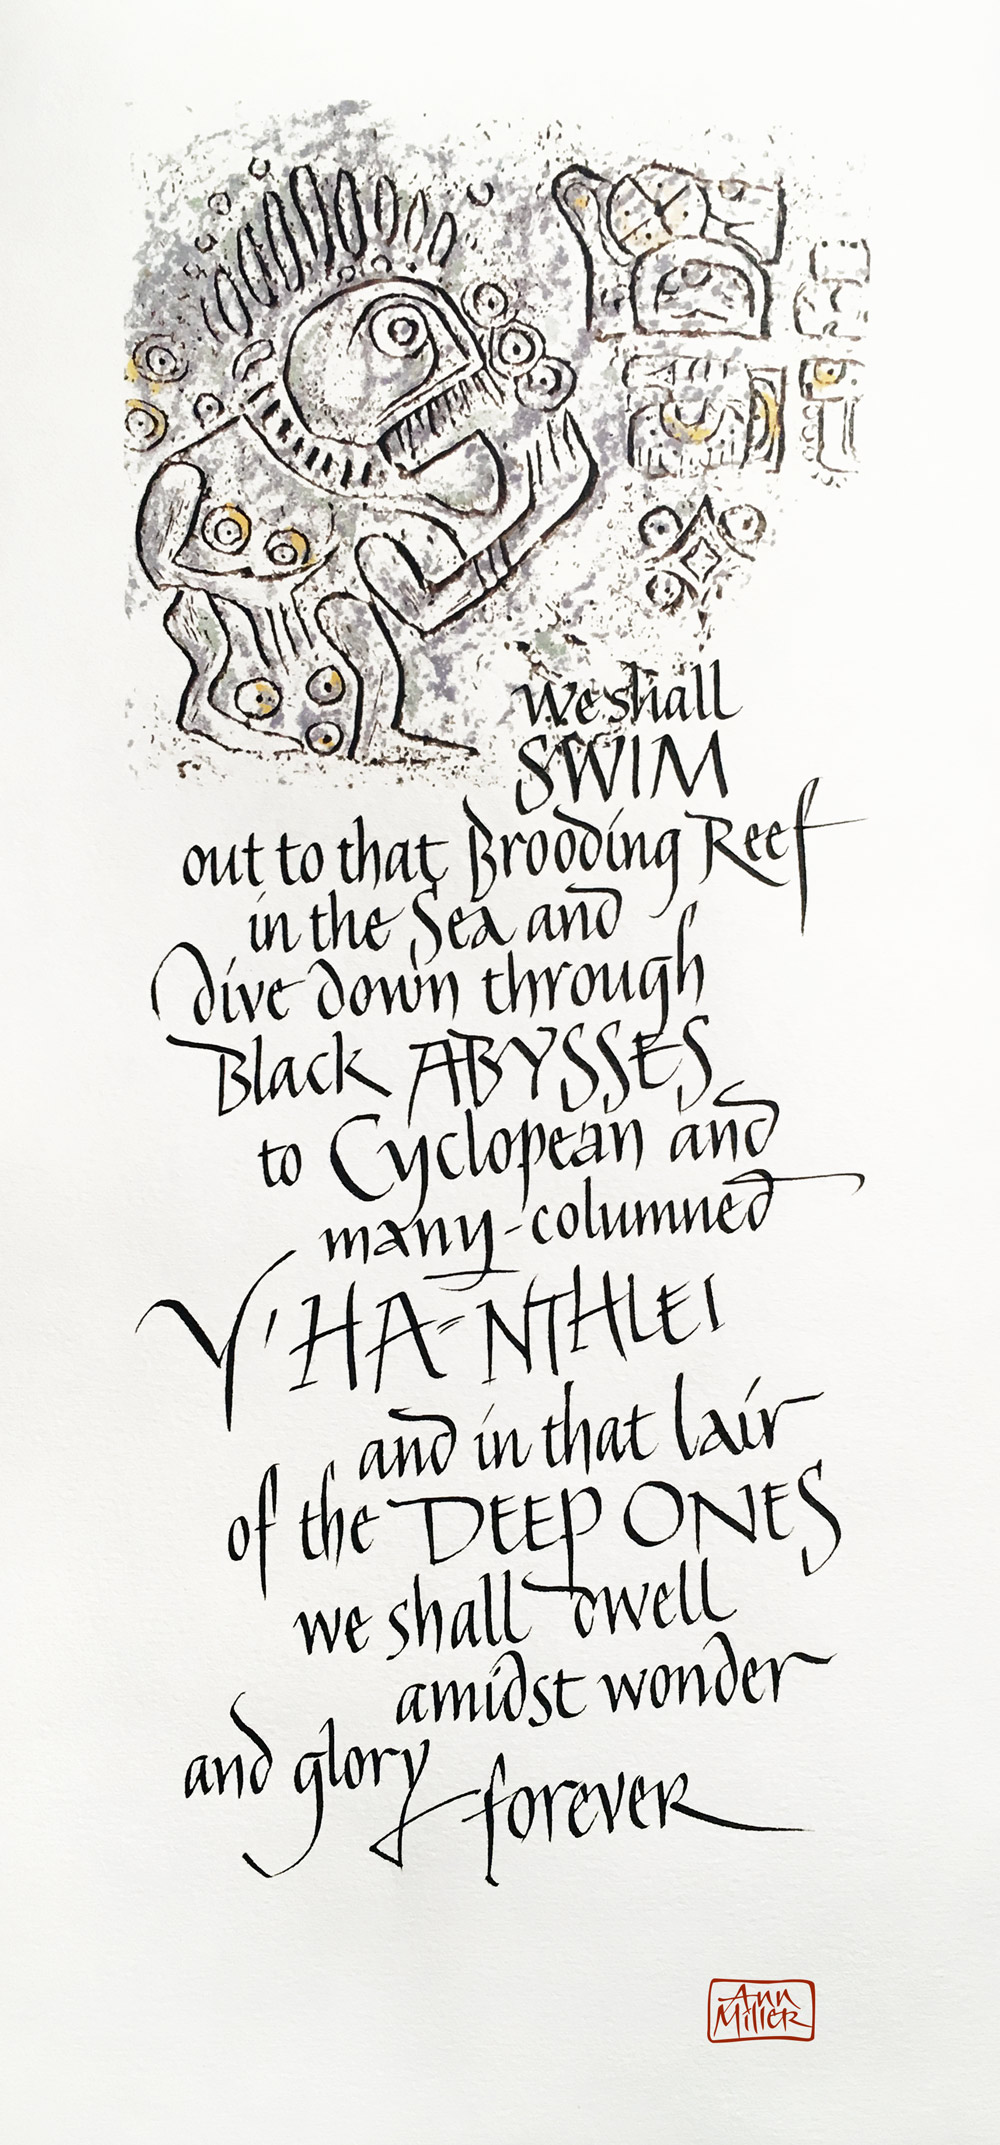 we shall
SWIM
out to that Brooding Reef
in the Sea and
dive down through
Black ABYSSES
to Cyclopean and
many-columned
Y'HA=NTHLEI
and in that lair
of the DEEP ONES
we shall dwell
amidst wonder
and glory
forever
Ann
Miller